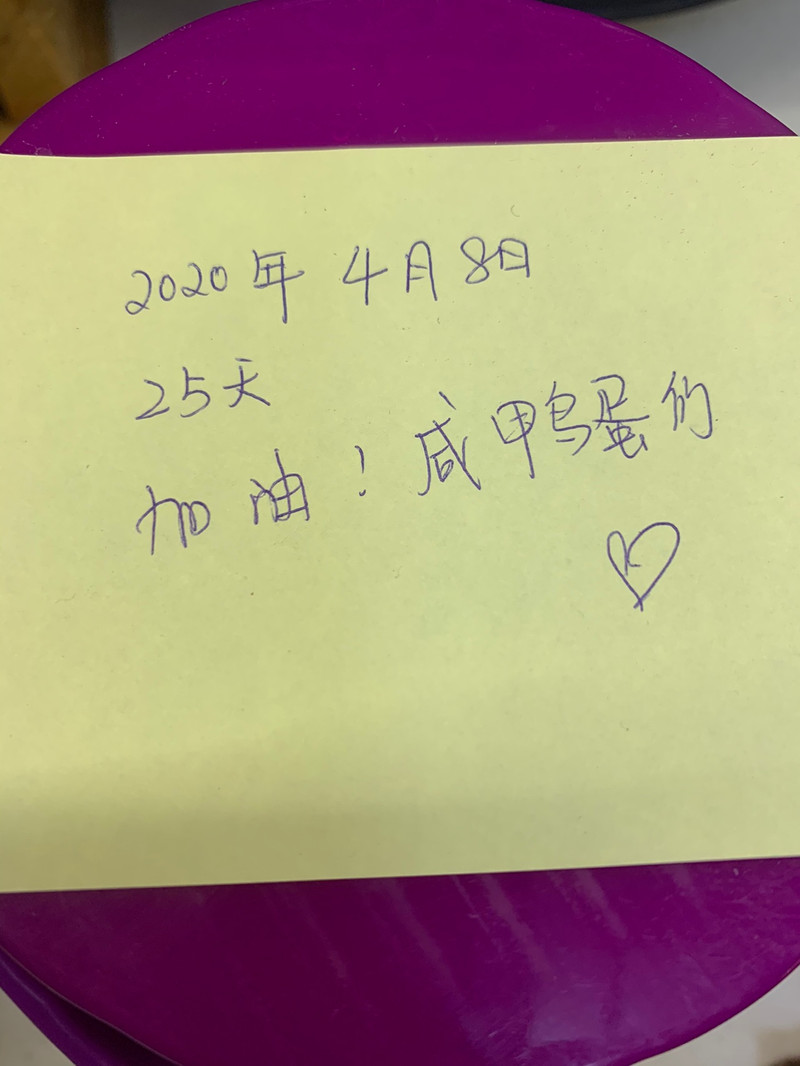 2020年4月8日
25天
加油！咸鸭蛋们